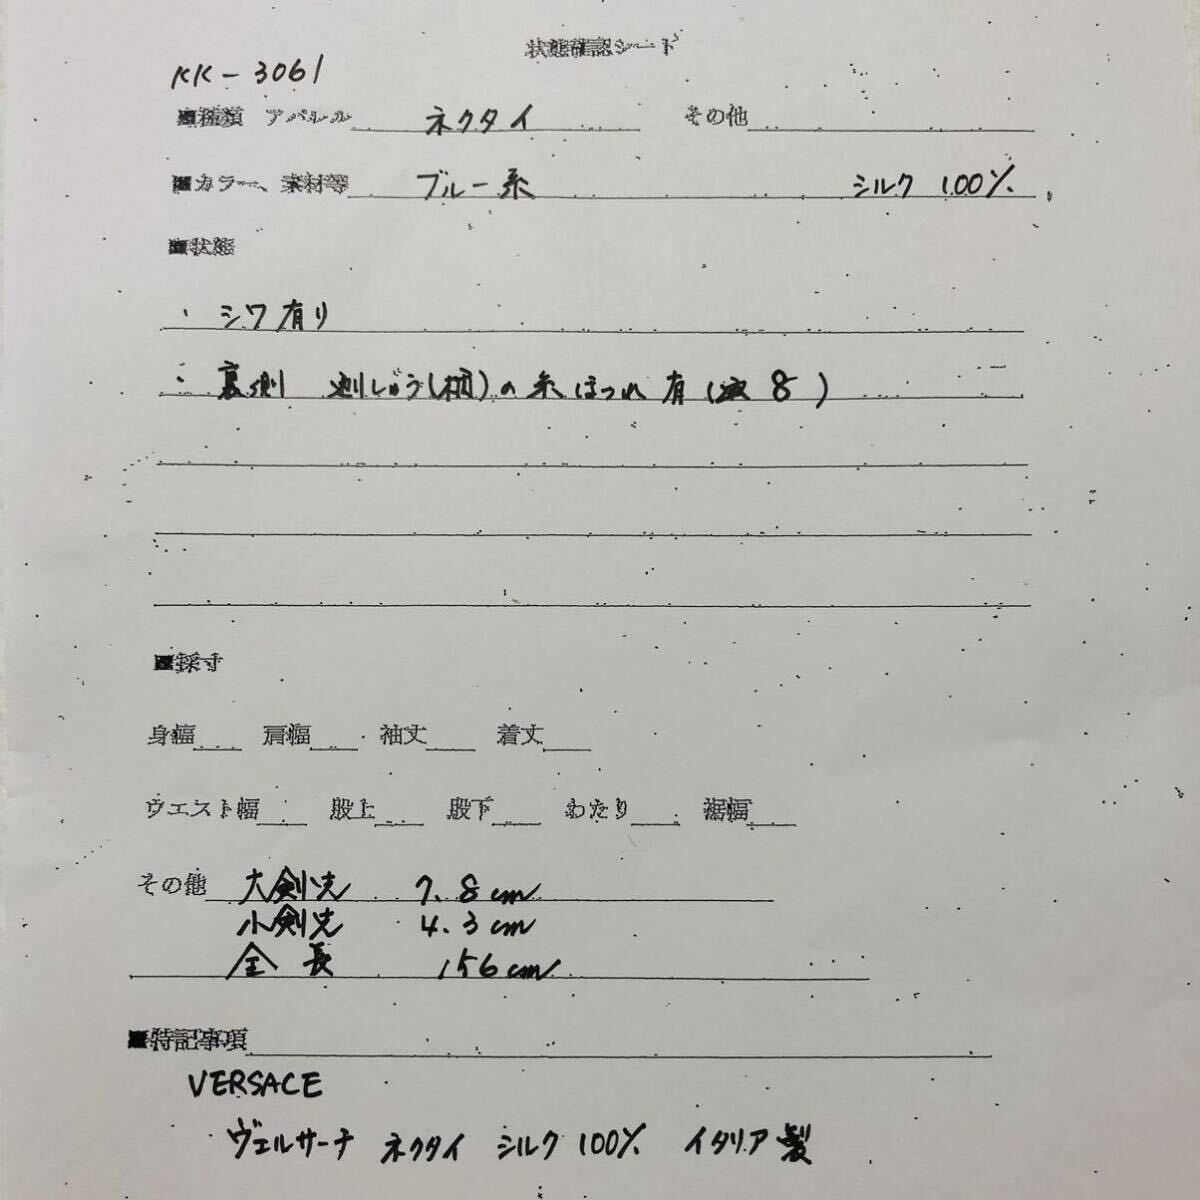 状態確認シート
KK-3061
■種類 アパレル ネクタイ その他
■カラー、素材等 ブルー系 シルク 100%
■状態
・シワ有り
・裏側 刺しゅう(柄)の糸ほつれ有( 8 )
■採寸
身幅 肩幅 袖丈 着丈
ウエスト幅 股上 股下 わたり 裾幅
その他 大剣先 7.8cm
小剣先 4.3cm
全長 156cm
■特記事項
VERSACE
ヴェルサーチ ネクタイ シルク100% イタリア製